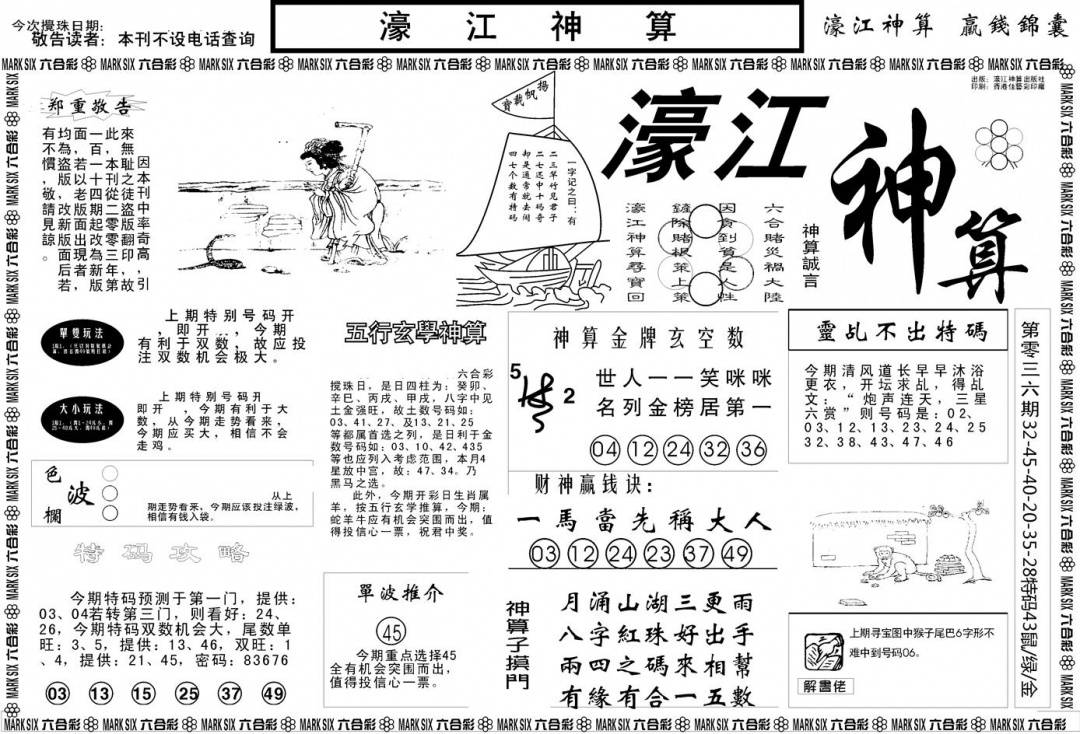 今次攪珠日期:
敬告读者：本刊不设电话查询
濠江神算
濠江神算 贏錢錦囊
MARK SIX 六合彩
出版：濠江神算出版社
印刷：香港佳藝彩印廠
郑重敬告
因本刊中奇高，引
來無恥之徒盜翻印，故
此，本刊從二零零三年第
一百一十四期起改現版，
面若以老版面出為者若
均為盜版，改新版面后，
有不慣，敬請見諒。
揚帆載寶
一字记之曰：有
二三草竹见君子
二七还中十码奇
却是通常就去阔
四七个数有特码
濠江
神算
神算誠言
六合賭災禍大陸
因貪到貧是人性
鏟除賭根策上策
濠江神算尋寶回
單雙玩法
上期特别号码开
，即开 ，今期
有利于双数，故应投
注双数机会极大。
大小玩法
上期特别号码开
即开 ，今期有利于大
数，从今期走势看来，
今期应买大，相信不会
走鸡。
色波欄
从上
期走势看来，今期应该投注绿波，
相信有钱入袋。
特码攻略
今期特码预测于第一门，提供：
03、04若转第三门，则看好：24、
26，今期特码双数机会大，尾数单
旺：3、5，提供：13、46，双旺：1
、4，提供：21、45，密码：83676
03 13 15 25 37 49
五行玄學神算
六合彩
搅珠日，是日四柱为：癸卯、
辛巳、丙戌、甲戌，八字中见
土金强旺，故土数号码如：
03、41、27、及13、21、25
等都属首选之列，是日利于金
数号码如：03、10、42、435
等也应列入考虑范围，本月4
星放中宫，故：47、34。乃
黑马之选。
此外，今期开彩日生肖属
羊，按五行玄学推算，今期：
蛇羊牛应有机会突围而出，值
得投信心一票，祝君中奖。
單波推介
45
今期重点选择45
全有机会突围而出，
值得投信心一票。
神算金牌玄空数
5
2
世人一一笑咪咪
名列金榜居第一
04 12 24 32 36
财神赢钱诀：
一馬當先稱大人
03 12 24 23 37 49
神算子摸門
月涌山湖三更雨
八字紅珠好出手
兩四之碼來相幫
有緣有合一五數
靈乩不出特碼
今期清风道长早早沐浴
更衣，开坛求乩，得乩
文：“炮声连天，三星
六赏”则号码是：02、
03、12、13、23、24、25
32、38、43、47、46
上期寻宝图中猴子尾巴6字形不
难中到号码06。
解畫佬
第零三六期32-45-40-20-35-28特码43鼠/绿/金